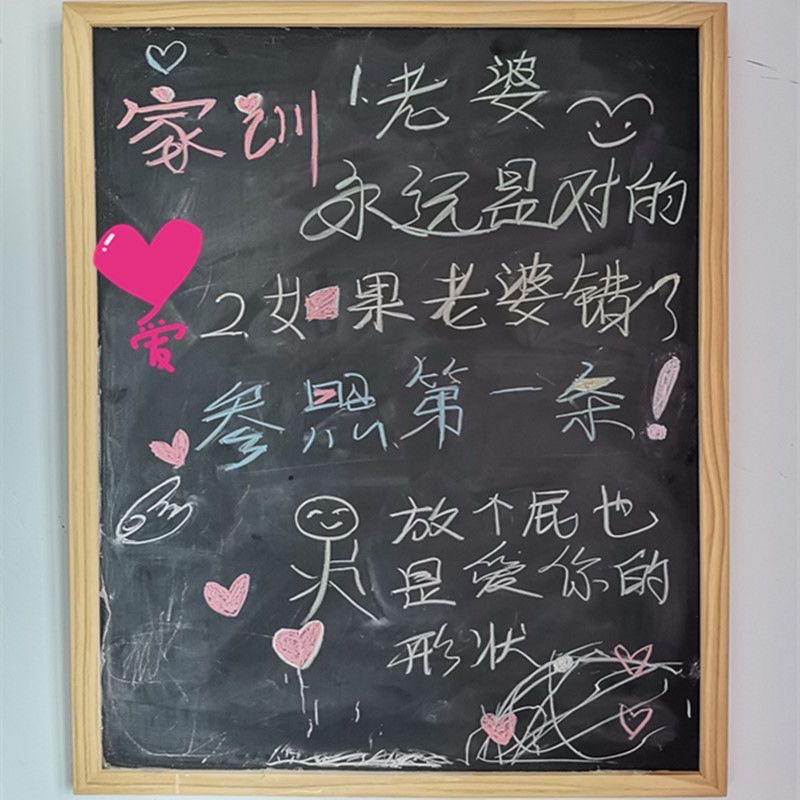 家训
1.老婆
永远是对的
爱
2.如果老婆错了
参照第一条!
放个屁也
是爱你的
形状